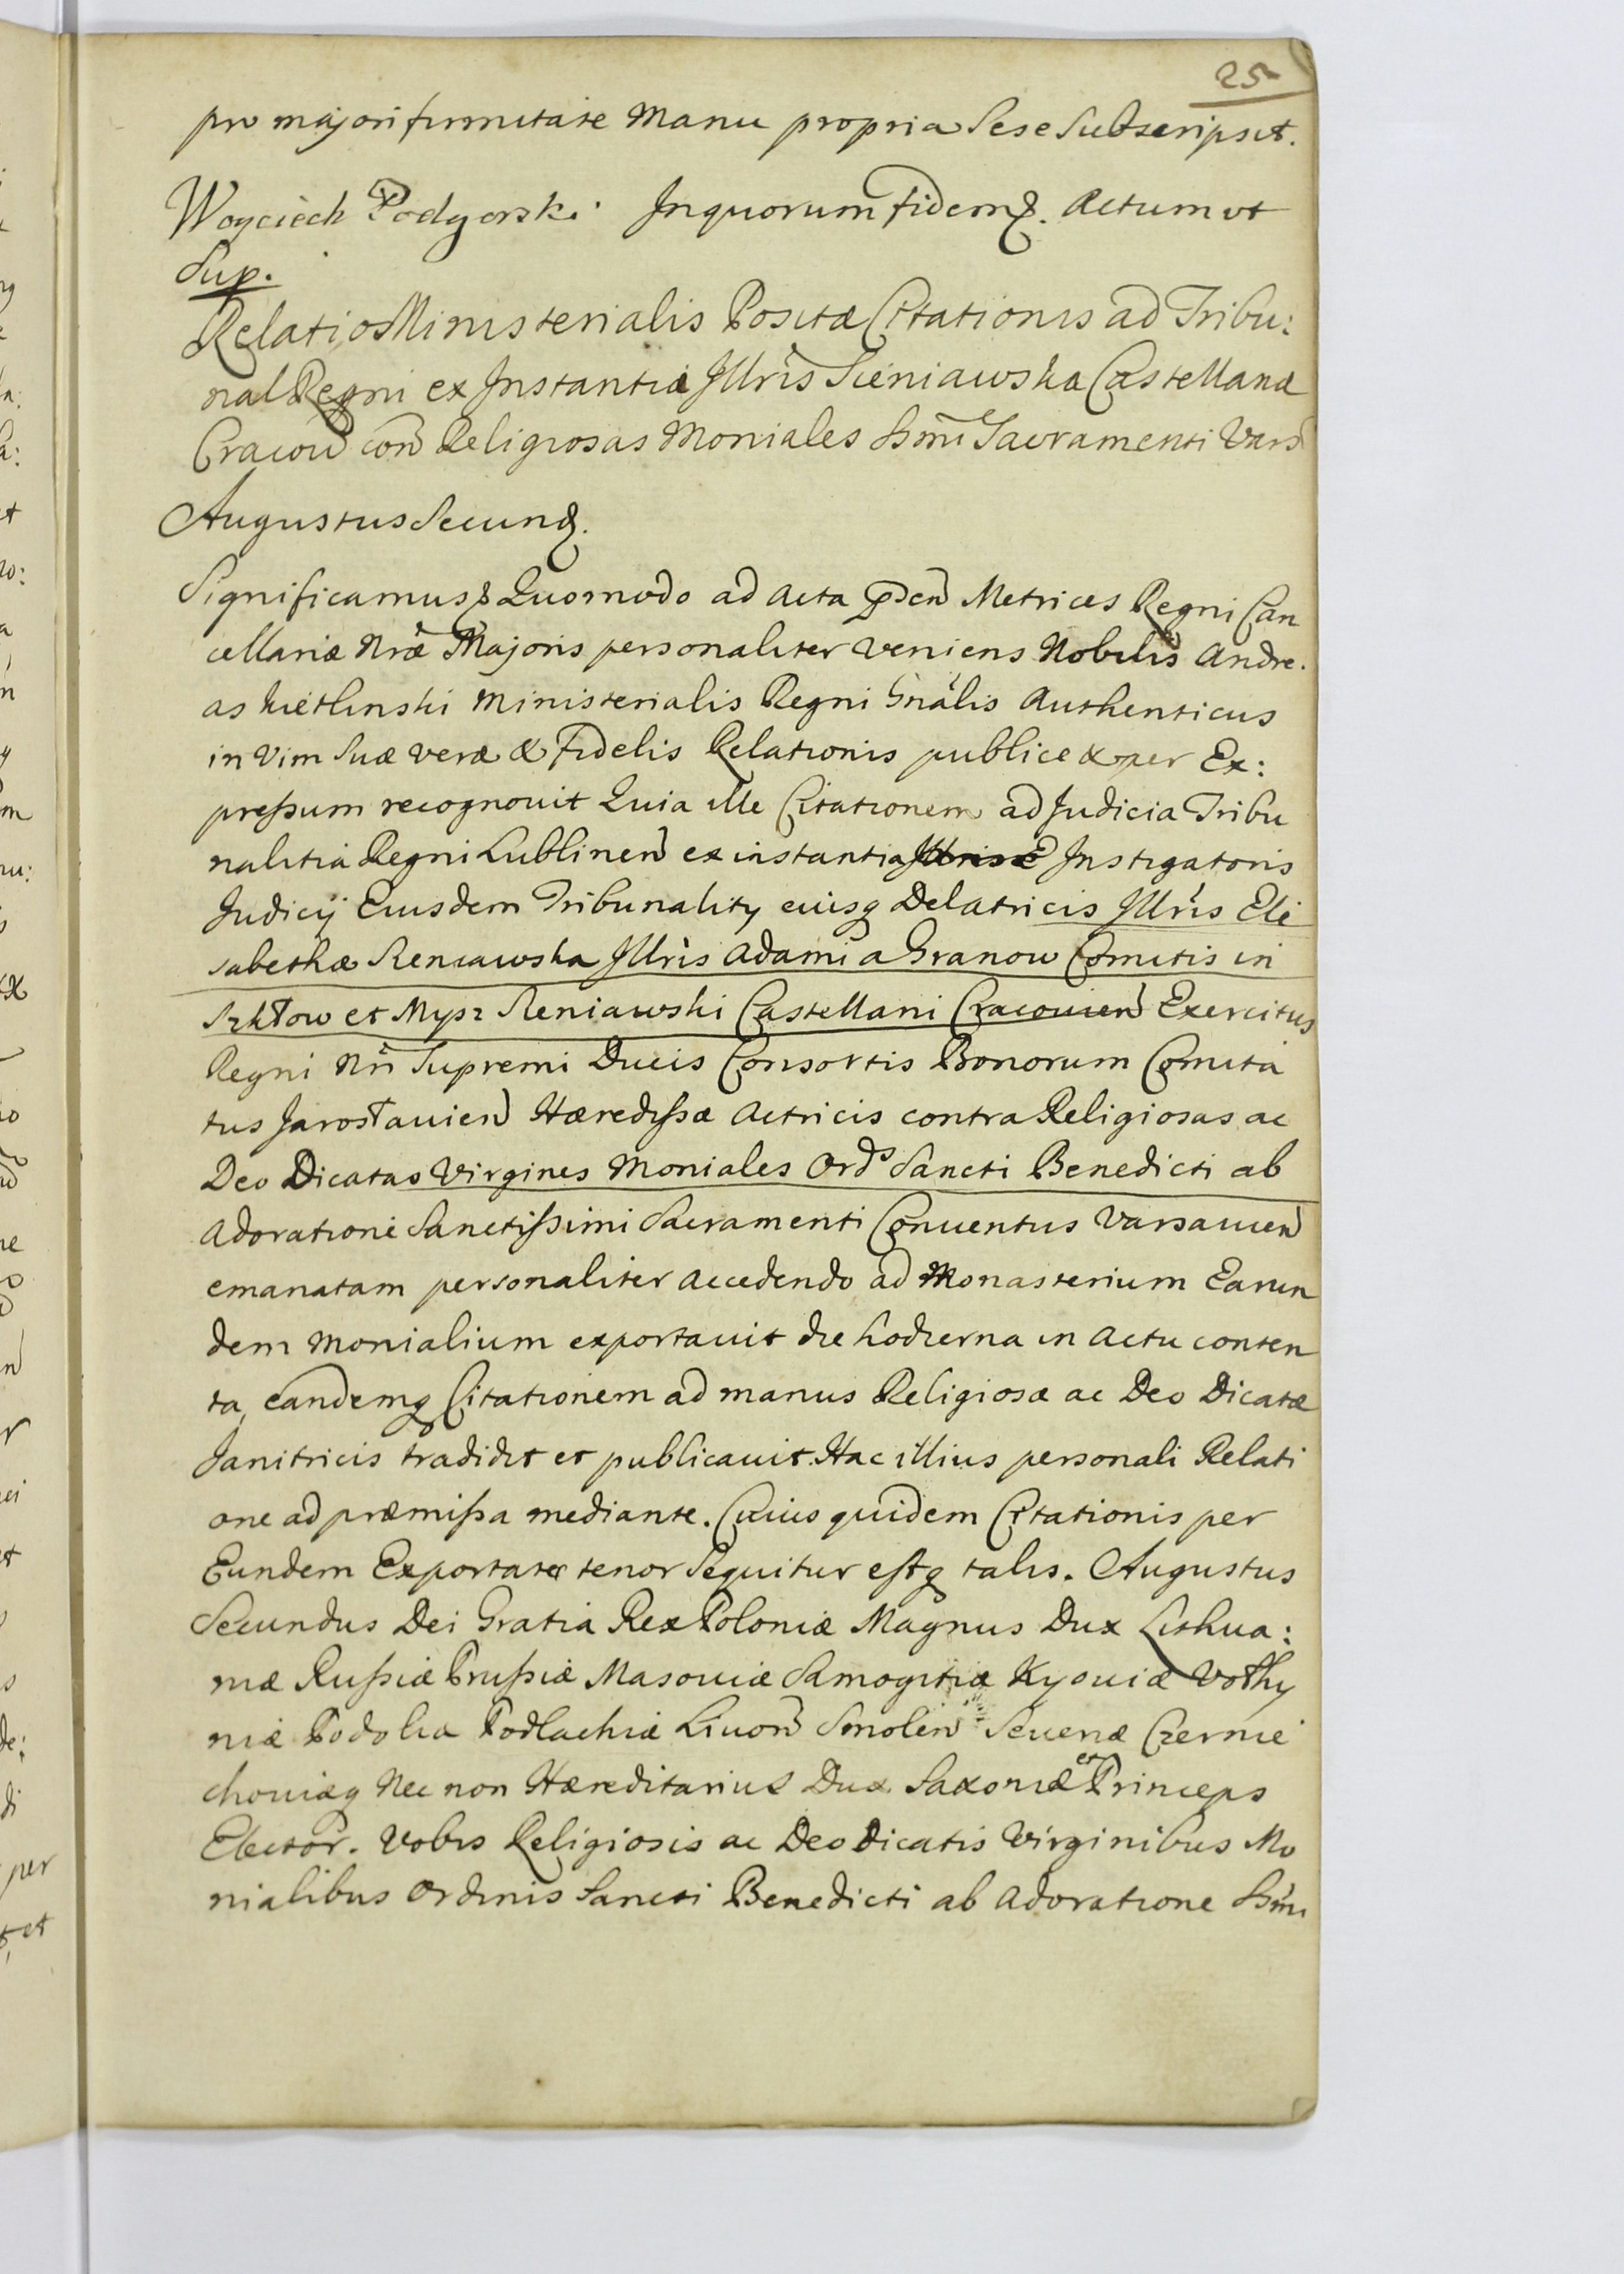 25
pro majori firmitate Manu propria Sese Subscripsit.
Woyciech Podgorski. In quorum fidem &. Actum ut
Sup.
Relatio Ministerialis Positæ Citationis ad Tribu:
nal Regni ex Instantia Illris Sieniawska Castellanæ
Cracoū con̄ Religiosas Moniales Ssm̄i Sacramenti Vars
Augustus Secund.
Significamus & Quomodo ad Acta p̄den̄ Metrices Regni Can
cellariæ Nr̄æ Majoris personaliter veniens Nobilis Andre.
as Kietlinski Ministerialis Regni Gnālis Authenticus
in Vim Suæ veræ & fidelis Relationis publice & per Ex:
preſsum recognovit Quia ille Citationem ad Judicia Tribu
nalitia Regni Lublinen̄ ex instantia Instigatoris
Judicij Eiusdem Tribunality eiusq Delatricis Illris Eli
sabethæ Seniawska Illris Adami a Granow Comitis in
Szkłow et Mysz Seniawski Castellani Cracouien̄ Exercitus
Regni Nr̄i Supremi Ducis Consortis Bonorum Comita
tus Jarosłauien̄ Hærediſsæ Actricis contra Religiosas ac
Deo Dicatas Virgines Moniales Ords Sancti Benedicti ab
Adoratione Sanctiſsimi Sacramenti Conuentus Varsauien̄
emanatam personaliter accedendo ad Monasterium Earun
dem Monialium exportauit die hodierna in Actu conten
ta, eandemq Citationem ad manus Religiosæ ac Deo Dicatæ
Janitricis tradidit et publicauit. Hac illius personali Relati
one ad præmiſsa mediante. Cuius quidem Citationis per
Eundem Exportatæ tenor Sequitur estq talis. Augustus
Secundus Dei Gratia Rex Poloniæ Magnus Dux Lithua:
niæ Ruſsiæ Pruſsiæ Masouiæ Samogitiæ Kyouiæ Vołhy
niæ Podoliæ Podlachiæ Liuon̄ Smolen̄ Seueriæ Czernie
chouiæq Nec non Hæreditarius Dux Saxoniæ et Princeps
Elector. Vobis Religiosis ac Deo Dicatis Virginibus Mo
nialibus Ordinis Sancti Benedicti ab Adoratione Ssm̄i